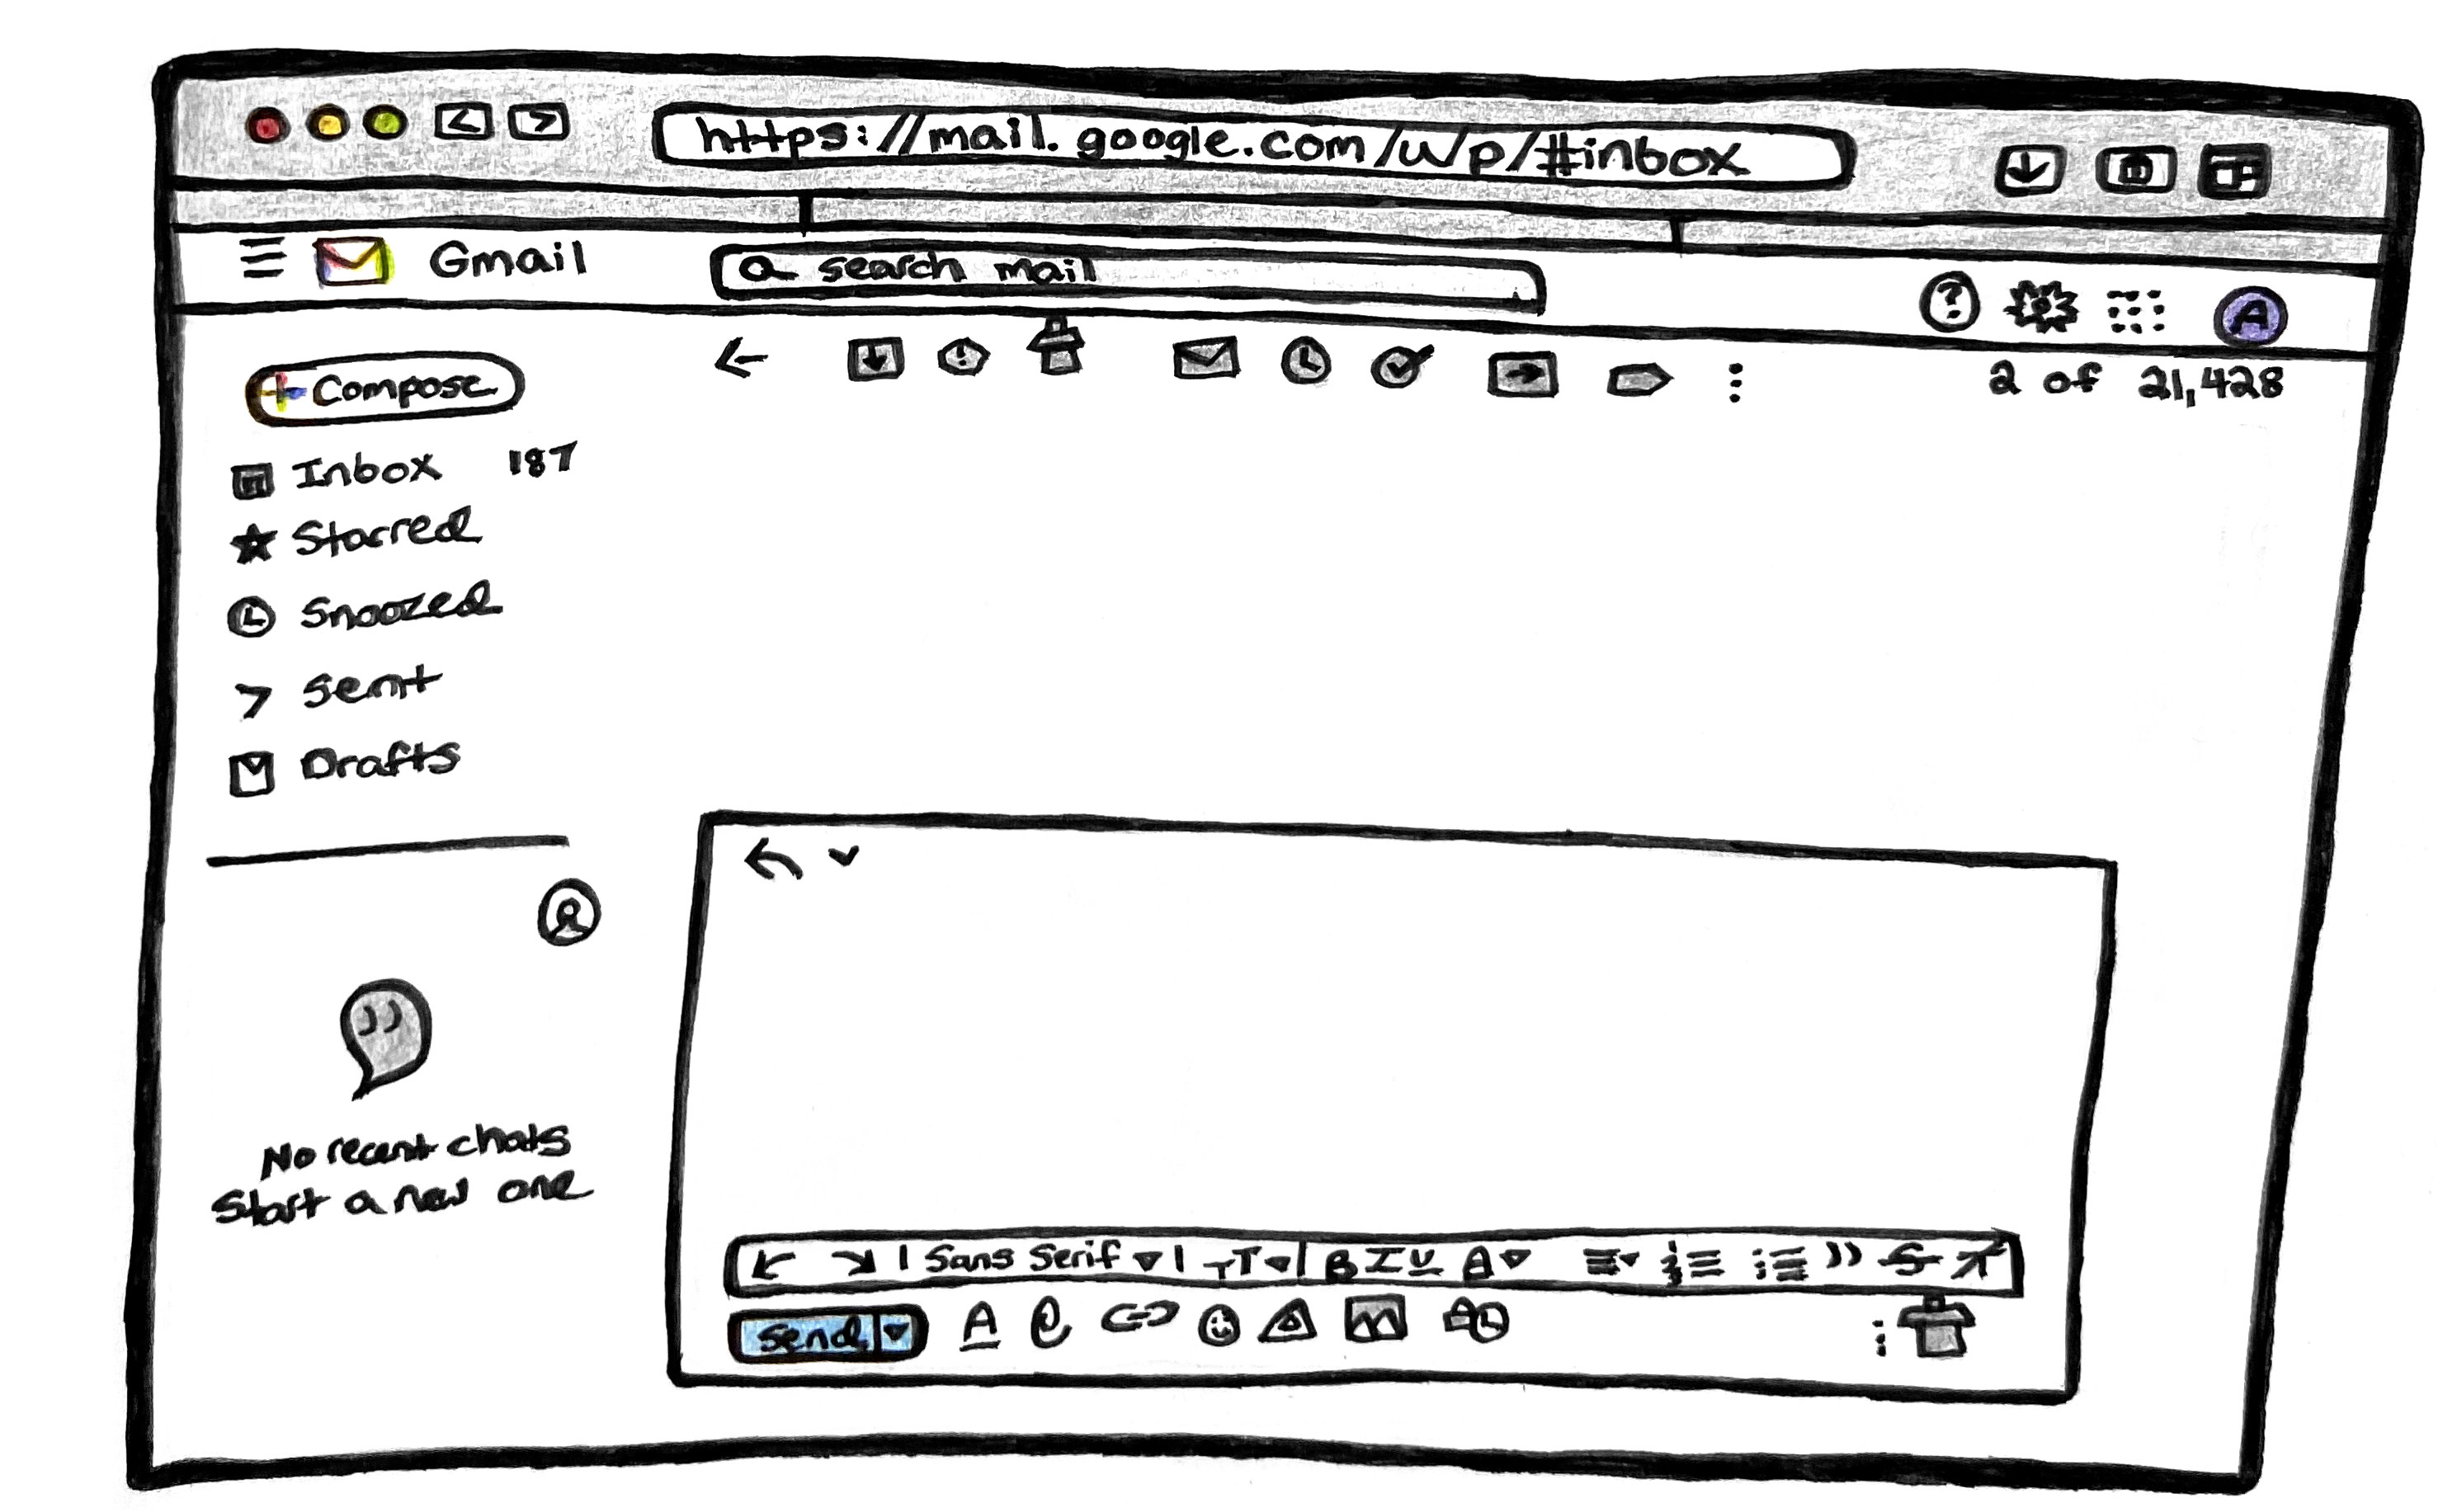 https://mail.google.com/w/p/#inbox
Gmail
search mail
A
2 of 21,428
Compose
Inbox 187
Starred
Snoozed
Sent
Drafts
No recent chats
Start a new one
Sans Serif TT B I U A
Send A